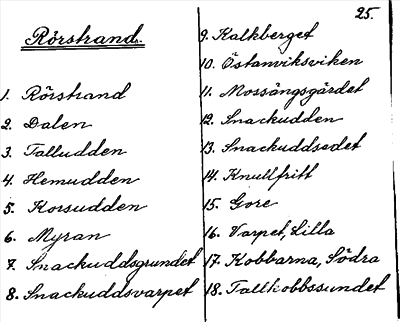 25.
Rörstrand.
1. Rörstrand
2. Dalen
3. Talludden
4. Hemudden
5. Korsudden
6. Myran
7. Snackuddsgrundet
8. Snackuddsvarpet
9. Kalkberget
10. Östanviksviken
11. Mossängsgärdet
12. Snackudden
13. Snackuddsedet
14. Knullfritt
15. Gore
16. Varpet, Lilla
17. Kobbarna, Södra
18. Tallkobbssundet